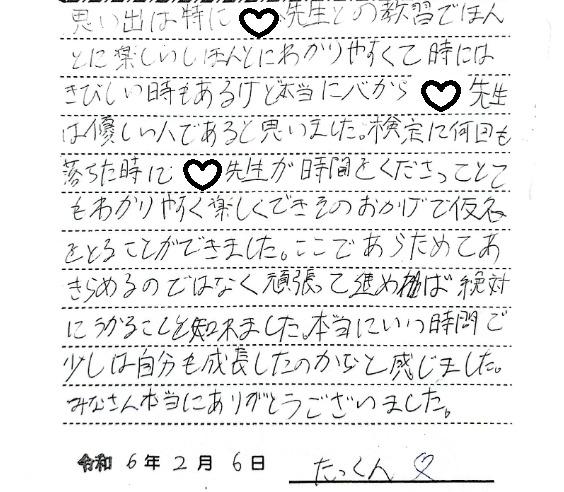 思い出は特に♡先生との教習でほん
とに楽しいしほんとにわかりやすくて時には
きびしい時もあるけど本当に心から♡先生
は優しい人であると思いました。検定に何回も
落ちた時に♡先生が時間をくださってとて
もわかりやすく楽しくできそのおかげで仮免
をとることができました。ここであらためてあ
きらめるのではなく頑張って進めれば絶対
にうかることを知れました。本当にいい時間で
少しは自分も成長したのかなと感じました。
みなさん本当にありがとうございました。
令和 6年 2月 6日 たっくん♡